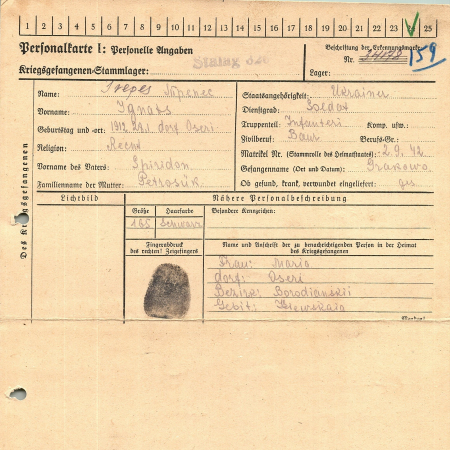 1 2 3 4 5 6 7 8 9 10 11 12 13 14 15 16 17 18 19 20 21 22 23 24 25
Personalkarte I: Personelle Angaben
Beschriftung der Erkennungsmarke
Nr. 159
Kriegsgefangenen-Stammlager: Stalag
Lager:
Des Kriegsgefangenen
Name:
Staatsangehörigkeit: Ukrainer
Vorname: Ignats
Dienstgrad: Soldat
Geburtstag und -ort: 1912 dorf Oseri
Truppenteil: Infanteri Komp. usw.:
Religion:
Zivilberuf: Baur Berufs-Gr.:
Vorname des Vaters: Spiridon
Matrikel Nr. (Stammrolle des Heimatstaates): 2.9.42
Gefangenname (Ort und Datum): Grakowo
Familienname der Mutter: Petrosük
Ob gesund, krank, verwundet eingeliefert: ges.
Lichtbild
Nähere Personalbeschreibung
Größe Haarfarbe Besondere Kennzeichen:
165 Schwarz
Fingerabdruck
des rechten! Zeigefingers
Name und Anschrift der zu benachrichtigenden Person in der Heimat
des Kriegsgefangenen
Frau: Maria
dorf: Oseri
Bezirk: Borodianskii
Gebit: